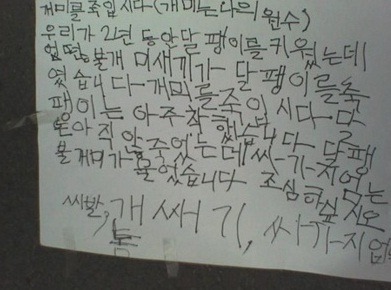 개미를죽입시다(개미는나의 원수)
우리가 2년 동안달팽이를키웠는데
엇떤, 불개미새기가 달팽이를죽
였습니다-개미를죽이시다-달
팽이는 아주착했습니다 달팽
도아직안죽었는데싸-가-지없는
불개미가 물었습니다 조심하싶시오
씨발, 개쌔기, 싸가-지업
놈